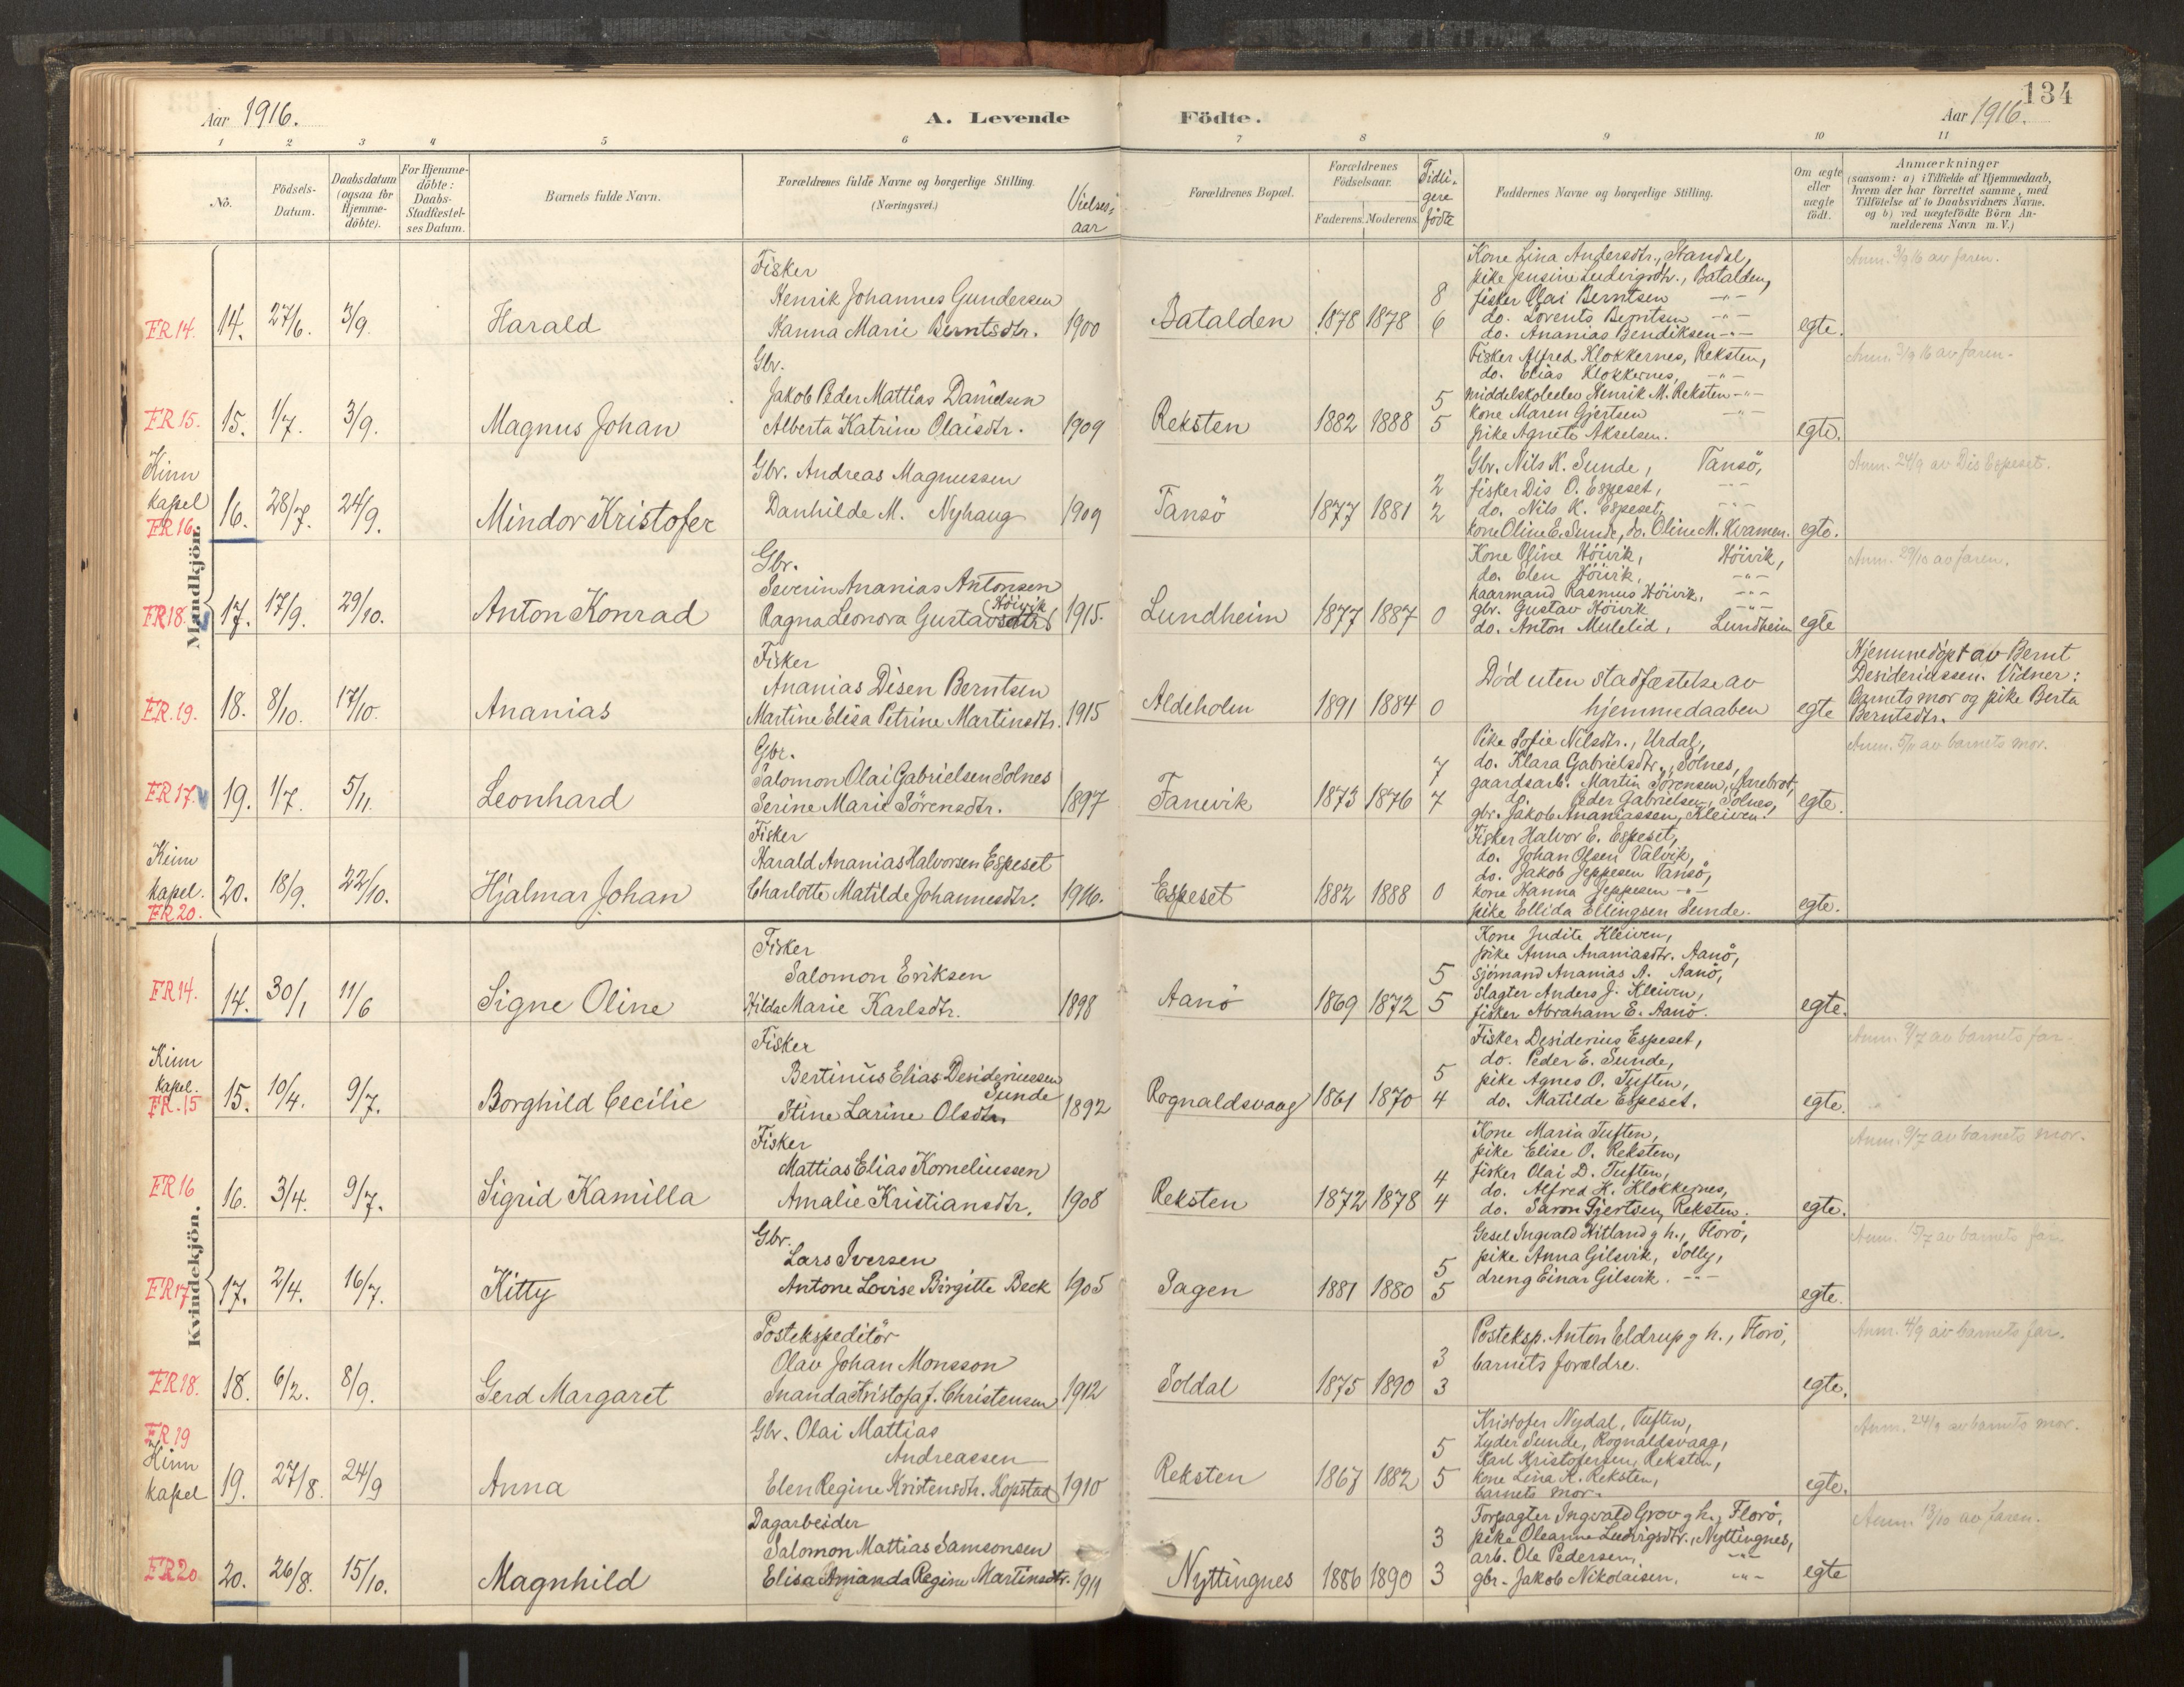 134
Aar 1916.
A. Levende Födte.
Aar 1916.
1 2 3 4 5 6 7 8 9 10 11
No.
Födsels-Datum.
Daabsdatum (ogsaa for Hjemme-döbte).
For Hjemme-döbte: Daabs-Stadfæstel-ses Datum.
Barnets fulde Navn.
Forældrenes fulde Navne og borgerlige Stilling. (Næringsvei.)
Vielses-aar
Forældrenes Bopæl.
Forældrenes Födselsaar.
Faderens. Moderens.
Tidli-gere födte
Faddernes Navne og borgerlige Stilling.
Om ægte eller uægte födt.
Anmærkninger (saasom: a) i Tilfælde af Hjemmedaab, hvem der har forrettet samme, med Tilföielse af to Daabsvidners Navne. og b) ved uægtefödte Börn An-melderens Navn m. V.)
Mandkjön.
FR 14. 14. 27/6. 3/9. Harald
Fisker
Henrik Johannes Gundersen
Hanna Marie Berntsdtr. 1900
Batalden 1878 1878 8 6
Kone Lina Andersdtr., Standal,
pike Jensine Ludvigsdtr., Batalden,
fisker Olai Berntsen -"-
do. Lorents Berntsen -"-
do. Ananias Bendiksen -"-
egte.
Anm. 3/9 16 av faren.
FR 15. 15. 1/7. 3/9. Magnus Johan
Gbr.
Jakob Peder Mattias Danielsen
Alberta Katrine Olaisdtr. 1909
Reksten 1882 1888 5 5
Fisker Alfred Klokkernes, Reksten,
do. Elias Klokkernes, -"-
middelskoleelev Henrik M. Reksten -"-
kone Maren Gjertsen -"-
pike Agnete Akselsen.
egte.
Anm. 3/9 16 av faren.
Kinn kapel
FR 16. 16. 28/7. 24/9. Mindor Kristofer
Gbr. Andreas Magnussen
Danhilde M. Nyhaug 1909
Tansö 1877 1881 2 2
Gbr. Nils K. Sunde, Tansö,
fisker Dis O. Espeset, -"-
do. Nils K. Espeset, -"-
kone Oline E. Sunde, do. Oline M. Kvamen.
egte.
Anm. 24/9 av Dis Espeset.
FR 18. 17. 17/9. 29/10. Anton Konrad
Gbr.
Severin Ananias Antonsen
(Höivik)
Ragna Leonora Gustavsdtr. 1915.
Lundheim 1877 1887 0
Kone Oline Höivik, Höivik,
do. Elen Höivik, -"-
kaarmand Rasmus Höivik, -"-
gbr. Gustav Höivik -"-
do. Anton Mulelid, Lundheim
egte
Anm. 29/10 av faren.
FR. 19. 18. 8/10. 17/10. Ananias
Fisker
Ananias Disen Berntsen
Martine Elisa Petrine Martinsdtr. 1915
Aldeholm 1891 1884 0
Död uten stadfæstelse av
hjemmedaaben
egte
Hjemmedöpt av Bernt
Desideriussen. Vidner:
Barnets mor og pike Berta
Berntsdtr.
FR 17. 19. 1/7. 5/11. Leonhard
Gbr.
Salomon Olai Gabrielsen Solnes
Serine Marie Sörensdtr. 1897
Fanevik 1873 1876 7 7
Pike Sofie Nilsdtr., Urdal,
do. Klara Gabrielsdtr., Solnes,
gaardsarb. Martin Sörensen, Aarebrot,
do. Peder Gabrielsen, Solnes,
gbr. Jakob Ananiassen, Kleiven.
egte.
Anm. 5/11 av barnets mor.
Kinn kapel.
FR 20. 20. 18/9. 22/10. Hjalmar Johan
Fisker
Harald Ananias Halvorsen Espeset
Charlotte Matilde Johannesdtr. 1916.
Espeset 1882 1888 0
Fisker Halvor E. Espeset,
do. Johan Olsen Valvik,
do. Jakob Jeppesen Tansö,
kone Hanna Jeppesen -"-
pike Ellida Ellingsen Sunde.
egte.
Kvindekjön.
FR 14. 14. 30/1 11/6 Signe Oline
Fisker
Salomon Eriksen
Hilda Marie Karlsdtr. 1898
Aanö 1869 1872 5 5
Kone Judite Kleiven,
pike Anna Ananiasdtr. Aanö,
sjömand Ananias A. Aanö,
slagter Anders J. Kleiven,
fisker Abraham E. Aanö.
egte.
Kinn kapel.
FR. 15 15. 10/4. 9/7. Borghild Cecilie
Fisker
Bertinus Elias Desideriussen
Sunde
Stine Larine Olsdtr. 1892
Rognaldsvaag 1861 1870 5 4
Fisker Desiderius Espeset,
do. Peder E. Sunde,
pike Agnes O. Tuften,
do. Matilde Espeset.
egte.
Anm. 9/7 av barnets far.
FR 16 16. 3/4. 9/7. Sigrid Kamilla
Fisker
Mattias Elias Korneliussen
Amalie Kristiansdtr. 1908
Reksten 1872 1878 4 4
Kone Maria Tuften,
pike Elise O. Reksten,
fisker Olai D. Tuften,
do. Alfred K. Klokkernes,
do. Saron Gjertsen, Reksten.
egte.
Anm. 9/7 av barnets mor.
FR 17 17. 2/4. 16/7. Kitty
Gbr.
Lars Iversen
Antone Lovise Birgitte Beck 1905
Sagen 1881 1880 5 5
Gesel Ingvald Hitland g h., Florö,
pike Anna Gilsvik, Solly,
dreng Einar Gilsvik. -"-
egte.
Anm. 15/7 av barnets far.
FR 18. 18. 6/2. 8/9. Gerd Margaret
Postekspeditör
Olav Johan Monsson
Inanda Kristofa f. Christensen 1912
Soldal 1875 1890 3 3
Posteksp. Anton Eldrup g h., Florö,
barnets forældre.
egte.
Anm. 4/9 av barnets far.
FR 19
Kinn kapel 19. 27/8. 24/9 Anna
Gbr. Olai Mattias
Andreassen
Elen Regine Kristensdtr. Hopstad 1910
Reksten 1867 1882 5 5
Kristofer Nydal, Tuften,
Lyder Sunde, Rognaldsvaag,
Karl Kristofersen, Reksten,
kone Lina K. Reksten,
barnets mor.
egte.
Anm. 24/9 av barnets mor.
FR 20 20. 26/8. 15/10. Magnhild
Dagarbeider
Salomon Mattias Samsonsen
Elisa Amanda Regine Martinsdtr. 1911
Nyttingnes 1886 1890 3 3
Forpagter Ingvald Grov g h., Florö,
pike Oleanne Ludvigsdtr., Nyttingnes,
arb. Ole Pedersen, -"-
gbr. Jakob Nikolaisen. -"-
egte
Anm. 13/10 av faren.